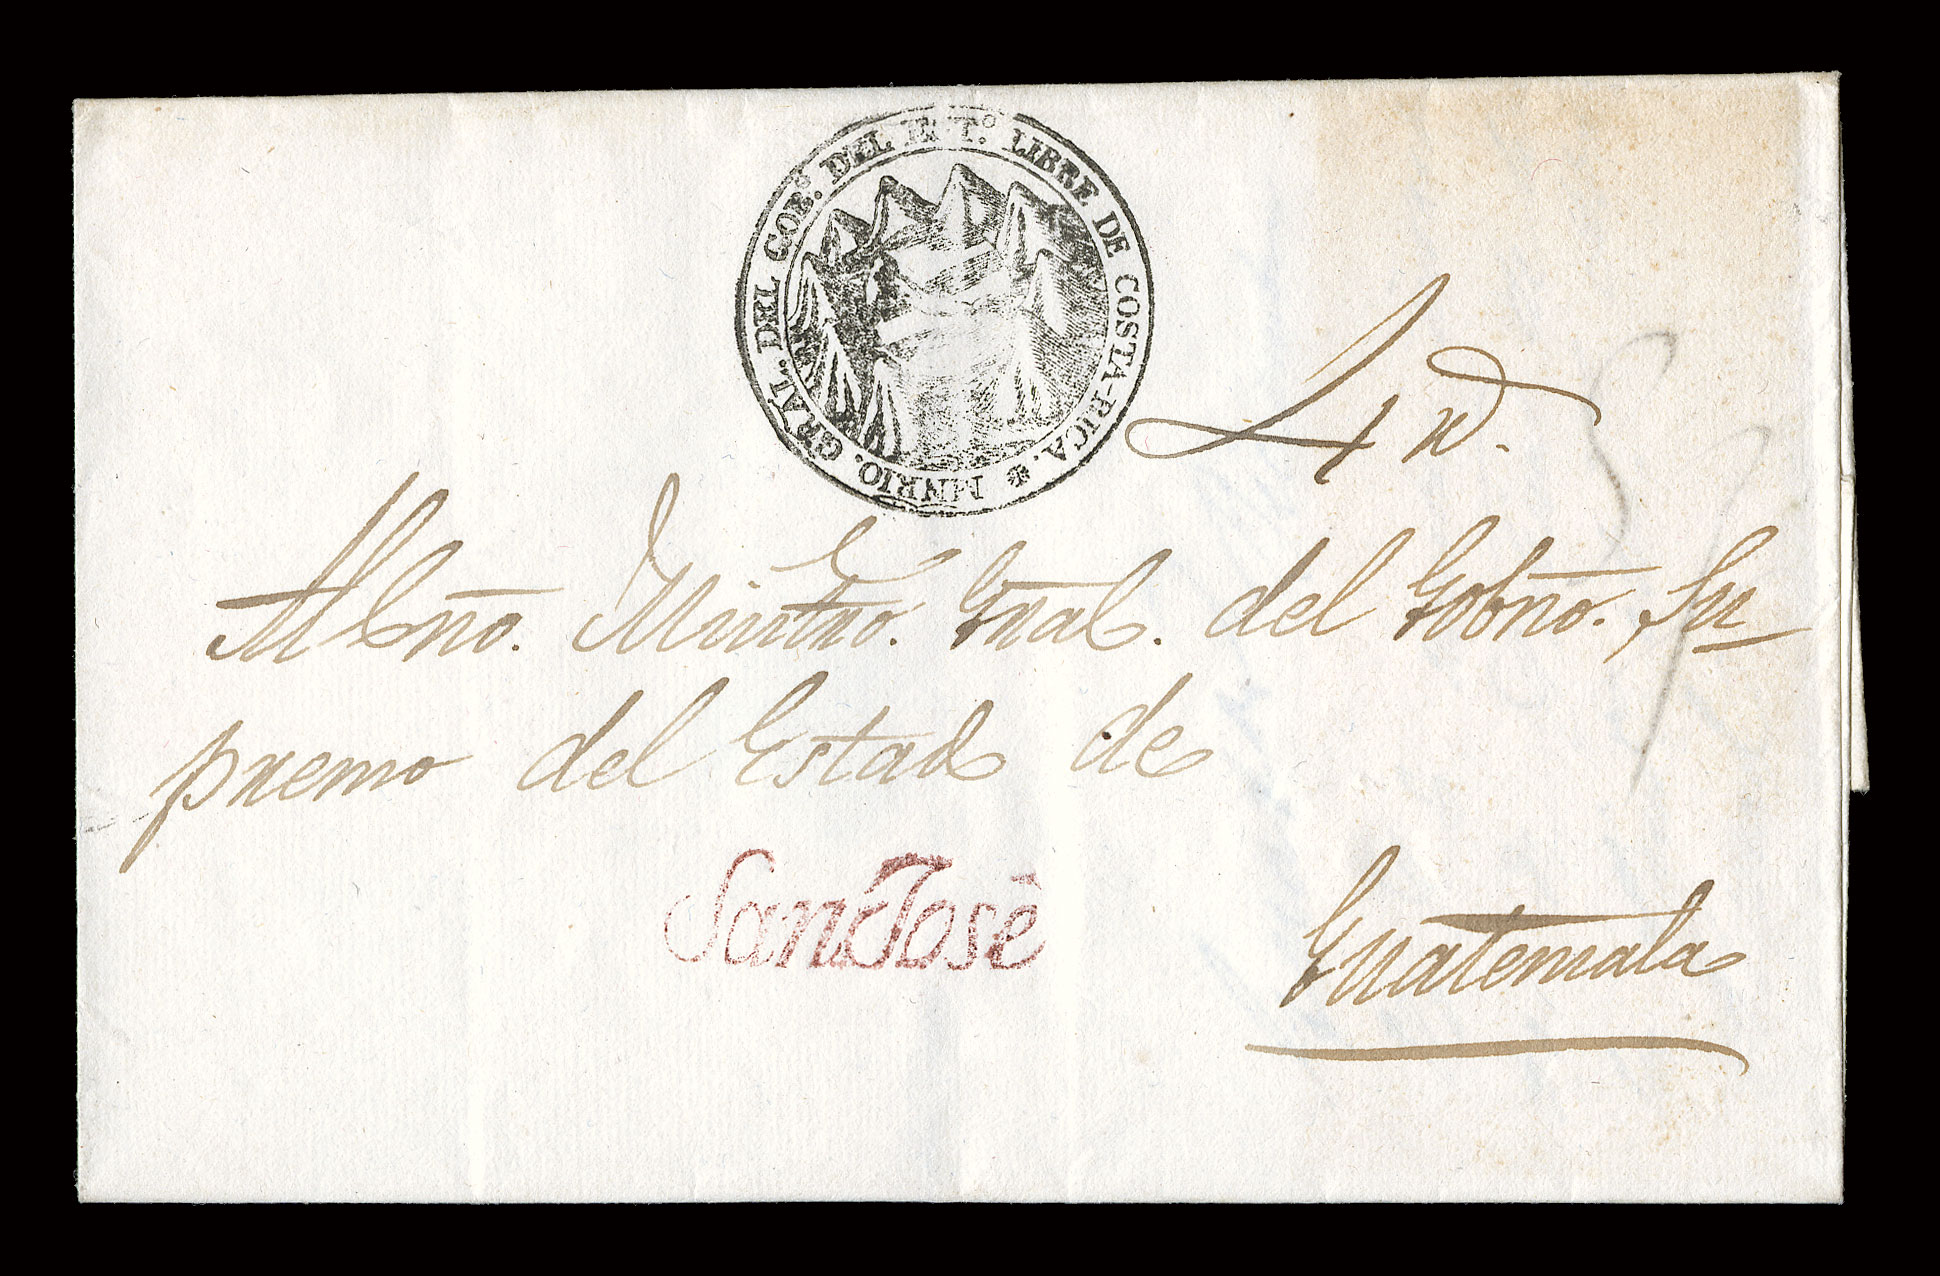 MNRIO. GRAL. DEL GOB.º DEL E.T.º LIBRE DE COSTA-RICA.
4 rs.
Al Exmo. Mintro. Gral. del Gobno. Su
premo del Estado de
San José
Guatemala